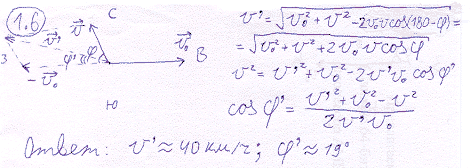 1.6
С
В
З
Ю
v⃗
v⃗'
v⃗₀
-v⃗₀
φ'
φ
v' = √(v₀² + v² - 2v₀v cos(180-φ)) =
= √(v₀² + v² + 2v₀v cos φ
v² = v'² + v₀² - 2v'v₀ cos φ'
cos φ' = (v'² + v₀² - v²) / (2v'v₀)
Ответ: v' ≈ 40 км/г; φ' ≈ 19°